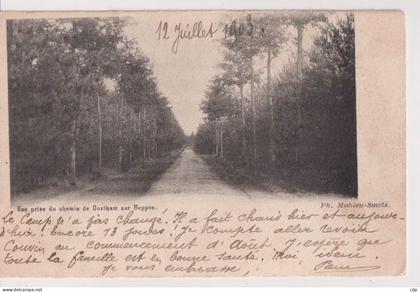 12 Juillet 1903.
Vue prise du chemin de Oostham sur Heppen.
Ph. Mahieu-Smets.
Le Camp n'a pas changé. Il a fait chaud hier et aujour-
d'hui! encore 13 jours! Je compte aller revoir
Couvin au commencement d'Août. J'espère que
toute la famille est en bonne santé. Moi idem.
Je vous embrasse,